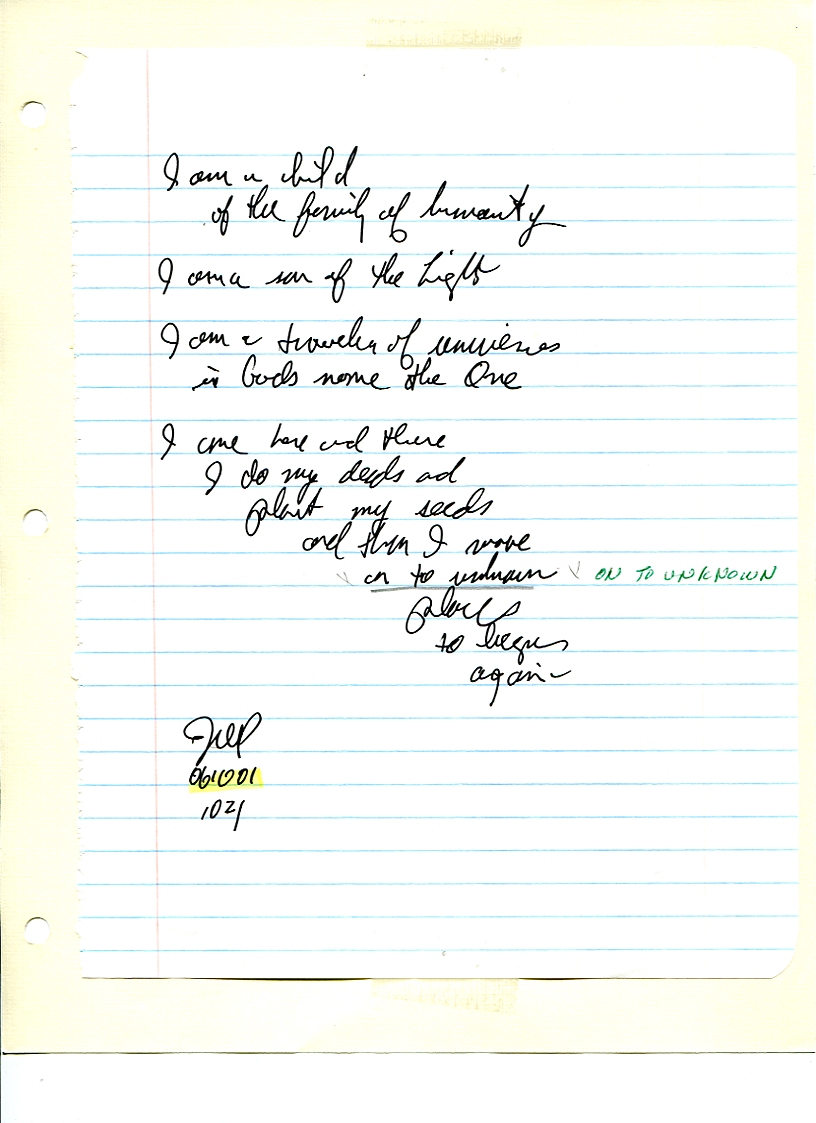 I am a child
of the family of humanity
I am a son of the Light
I am a traveler of universes
in Gods name the One
I come here and there
I do my deeds and
plant my seeds
and then I move
on to unknown ON TO UNKNOWN
places
to begin
again
061001
1021